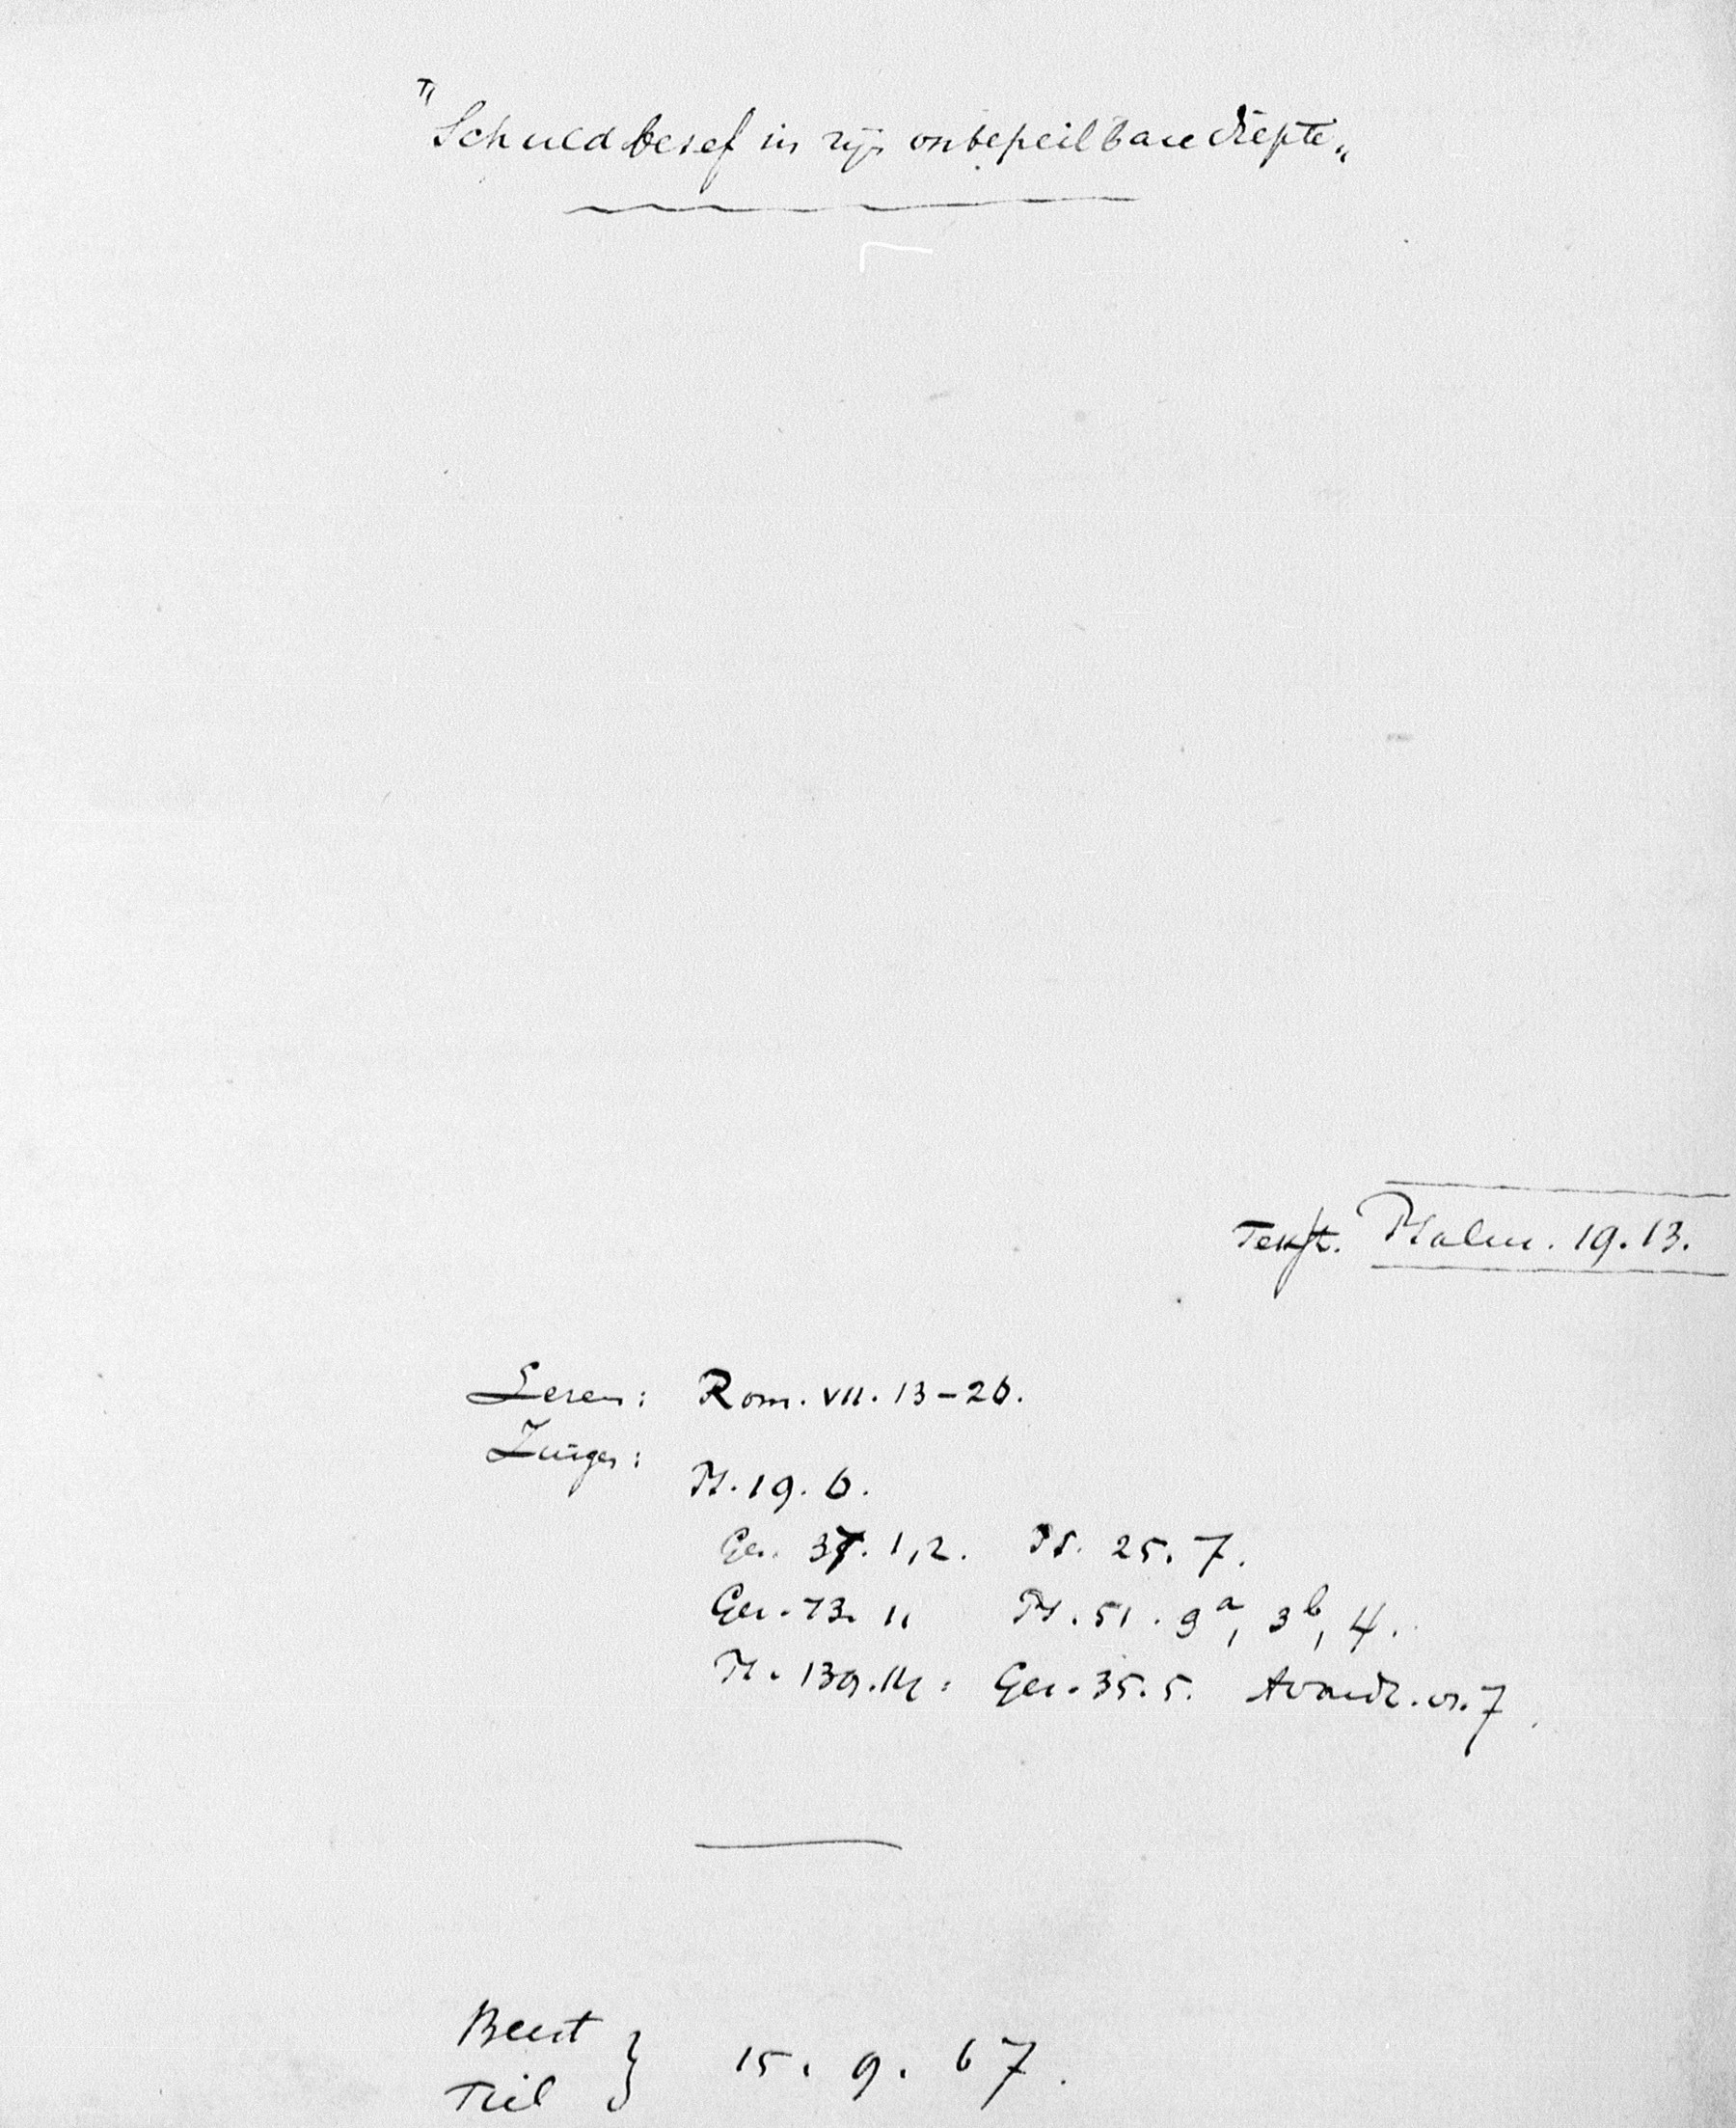 "Schuldbesef in zijn onbepeilbare diepte„
Tekst. Psalm. 19.13.
Lezen: Rom. VII. 13-26.
Zingen:
Ps. 19. 6.
Gez. 37. 1,2. Ps. 25. 7.
Gez. 73. 11 Ps. 51. 3a, 3b, 4.
Ps. 139.14: Gez. 35.5. Avondz. vs. 7.
Beest }
Tiel } 15. 9. 67.